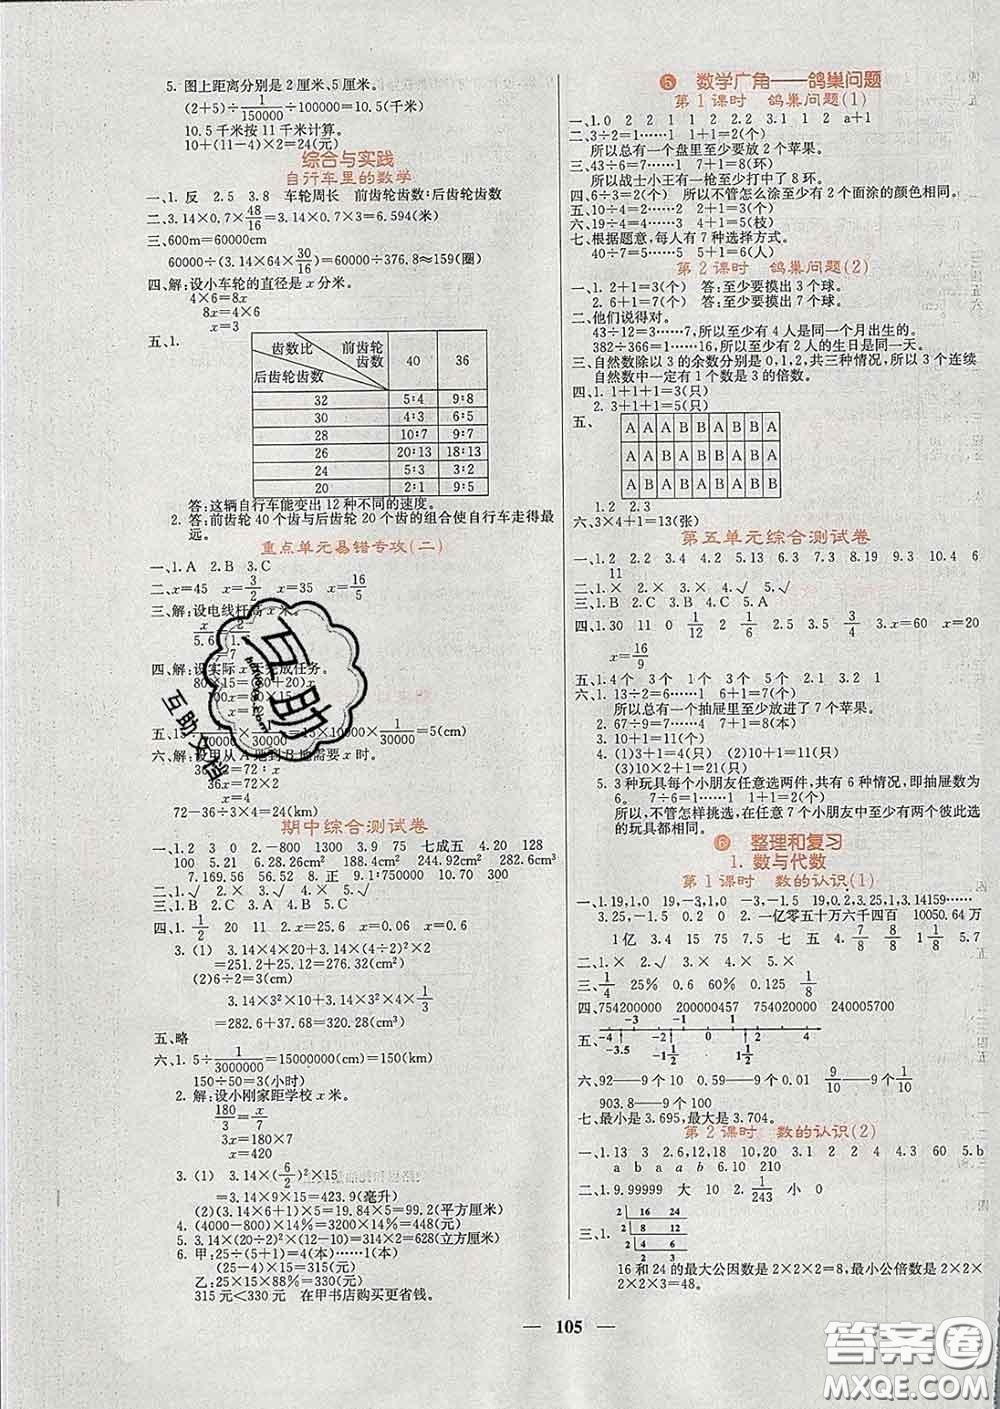 5. 图上距离分别是2厘米、5厘米。
(2+5)÷1/150000÷100000=10.5(千米)
10.5千米按11千米计算。
10+(11-4)×2=24(元)
综合与实践
自行车里的数学
一、1. 反 2.5 3.8 车轮周长 前齿轮齿数:后齿轮齿数
二、3.14×0.7×48/16=3.14×0.7×3=6.594(米)
三、600m=60000cm
60000÷(3.14×64×30/16)=60000÷376.8≈159(圈)
四、解:设小车轮的直径是x分米。
4×6=8x
8x=4×6
x=3
五、1.
齿数比 前齿轮齿数 后齿轮齿数 40 36
32 5:4 9:8
30 4:3 6:5
28 10:7 9:7
26 20:13 18:13
24 5:3 3:2
20 2:1 9:5
答:这辆自行车能变出12种不同的速度。
2. 答:前齿轮40个齿与后齿轮20个齿的组合使自行车走得最
远。
重点单元易错专攻(二)
一、1.A 2.B 3.C
二、x=45 x=3/2 x=35 x=16/5
三、解:设电线杆高x米。
x=7
四、解:设实际x天完成任务。
80×15=(80+20)x
100x=
五、15×10000×1/30000=5(cm)
六、解:设甲从A地到B地需要x时。
36x=72×2
x=4
72-36÷3×4=24(km)
期中综合测试卷
一、1.2 3 0 2.-800 1300 3.9 75 七成五 4.20 128
100 5.21 6.28.26cm² 28.26cm² 113.04cm² 56.52cm³
7.169.56 56.52 8.正 9.1:750000 10.70 300
二、1.× 2.√ 3.× 4.× 5.√
三、1.B 2.C 3.A 4.C 5.C
四、1.1/2 20 11 2.x=0.6 x=25.6 x=0.6
3. (1) 3.14×4×20+3.14×(4÷2)²×2
=251.2+25.12=276.32(cm²)
(2)6÷2=3(cm)
3.14×3²×10+3.14×3²×4×1/3
=282.6+37.68=320.28(cm³)
五、略
六、1. 5÷1/3000000=15000000(cm)=150(km)
150÷50=3(小时)
2. 解:设小刚家距学校x米。
180/3=x/7
3x=180×7
x=420
3. (1) 3.14×(6/2)²×15
=3.14×9×15=423.9(毫升)
(2)(3.14×6×15)×5=19.84×5=99.2(平方厘米)
4. (4000-800)×14%=3200×14%=448(元)
5. 3.14×(20÷2)²×(12-10)=314×2=628(立方厘米)
6. 甲:25÷(5+1)=4(本)……1(本)
(25-4)×15=315(元)
乙:25×15×88%=330(元)
315元<330元 在甲书店购买更省钱。
⑤ 数学广角——鸽巢问题
第1课时 鸽巢问题(1)
一、1.0 2 2 1 1 2 2.2 3.1 2 a+1
二、3÷2=1……1 1+1=2(个)
所以总有一个盘里至少放2个苹果。
三、43÷6=7……1 7+1=8(环)
所以战士小王有一枪至少打中了8环。
四、6÷3=2(个) 所以不管怎么涂至少有2个面涂的颜色相同。
五、10÷4=2……2 2+1=3(个)
六、19÷4=4……3 4+1=5(枝)
七、根据题意,每人有7种选择方式。
40÷7=5……5 5+1=6(人)
第2课时 鸽巢问题(2)
一、1. 2+1=3(个) 答:至少要摸出3个球。
2. 6+1=7(个) 答:至少要摸出7个球。
二、他们说得对。
43÷12=3……7,所以至少有4人是同一个月出生的。
382÷366=1……16,所以至少有2人的生日是同一天。
三、自然数除以3的余数分别是0,1,2,共三种情况,所以3个连续
自然数中一定有1个数是3的倍数。
四、1. 1+1+1=3(只)
2. 3+1+1=5(只)
五、
A A A B B A B B A
A A A B B A B B A
A A A B B A B B A
1.2 2.3
六、3×4+1=13(张)
第五单元综合测试卷
一、1.2 2.2 3.4 4.2 5.13 6.3 7.3 8.19 9.3 10.4 6
11
二、1.× 2.× 3.√ 4.√ 5.×
三、1.B 2.C 3.B 4.B 5.A
四、1.30 11 0 1/12 2 1/6 2.5 3.5 3/4 3.x=60 x=20
x=16/9
五、1.4个 3个 1个 5个 2个 2.1 3.2 1
六、1. 13÷2=6……1 6+1=7(个)
所以总有一个抽屉里至少放进了7个苹果。
2. 67÷9=7……4 7+1=8(本)
3. 10+1=11(个)
4. (1)3+1=4(只) (2)10+1=11(只)
(3)10×2+1=21(只)
5. 3种玩具每个小朋友任意选两件,共有6种情况,即抽屉数为
6。 7÷6=1……1 1+1=2(个)
所以,不管怎样挑选,在任意7个小朋友中总有两个彼此选
的玩具都相同。
⑥ 整理和复习
1. 数与代数
第1课时 数的认识(1)
一、1.19,1,0 19,-3,1,0 -3,-1.5 19,0,2,3.25,1,3.14159……
3.25,-1.5 0 2.一亿零五十万六千四百 10050.64万
1亿 3.4 15 75 7.5 七 五 4.7/8 7/8 1/8 1/8 5.7
二、1.× 2.× 3.√ 4.× 5.×
三、1/4 25% 0.6 60% 0.125 1/8
四、754200000 200000457 754020000 240005700
五、
-3 -1 1
-4 -2 0 2 4
-3.5 -1 1/2 1 1/2
六、92——9个10 590——9个0.01 9/10——9个1/10
903.8——9个100
七、最小是3.695,最大是3.704。
第2课时 数的认识(2)
一、1.13 3 2.6,12,18 10,20 3.1 2 4 4.3 60 5.b
a b a a b 6.10 210
二、1.9.99999 大 10 2.1/243 小 0
三、1.
2 16 24
2 8 12
2 4 6
2 3
16和24的最大公因数是2×2×2=8,最小公倍数是2×2×2
×2×3=48。
— 105 —
互助
互助文档
答案圈
MXQE.COM